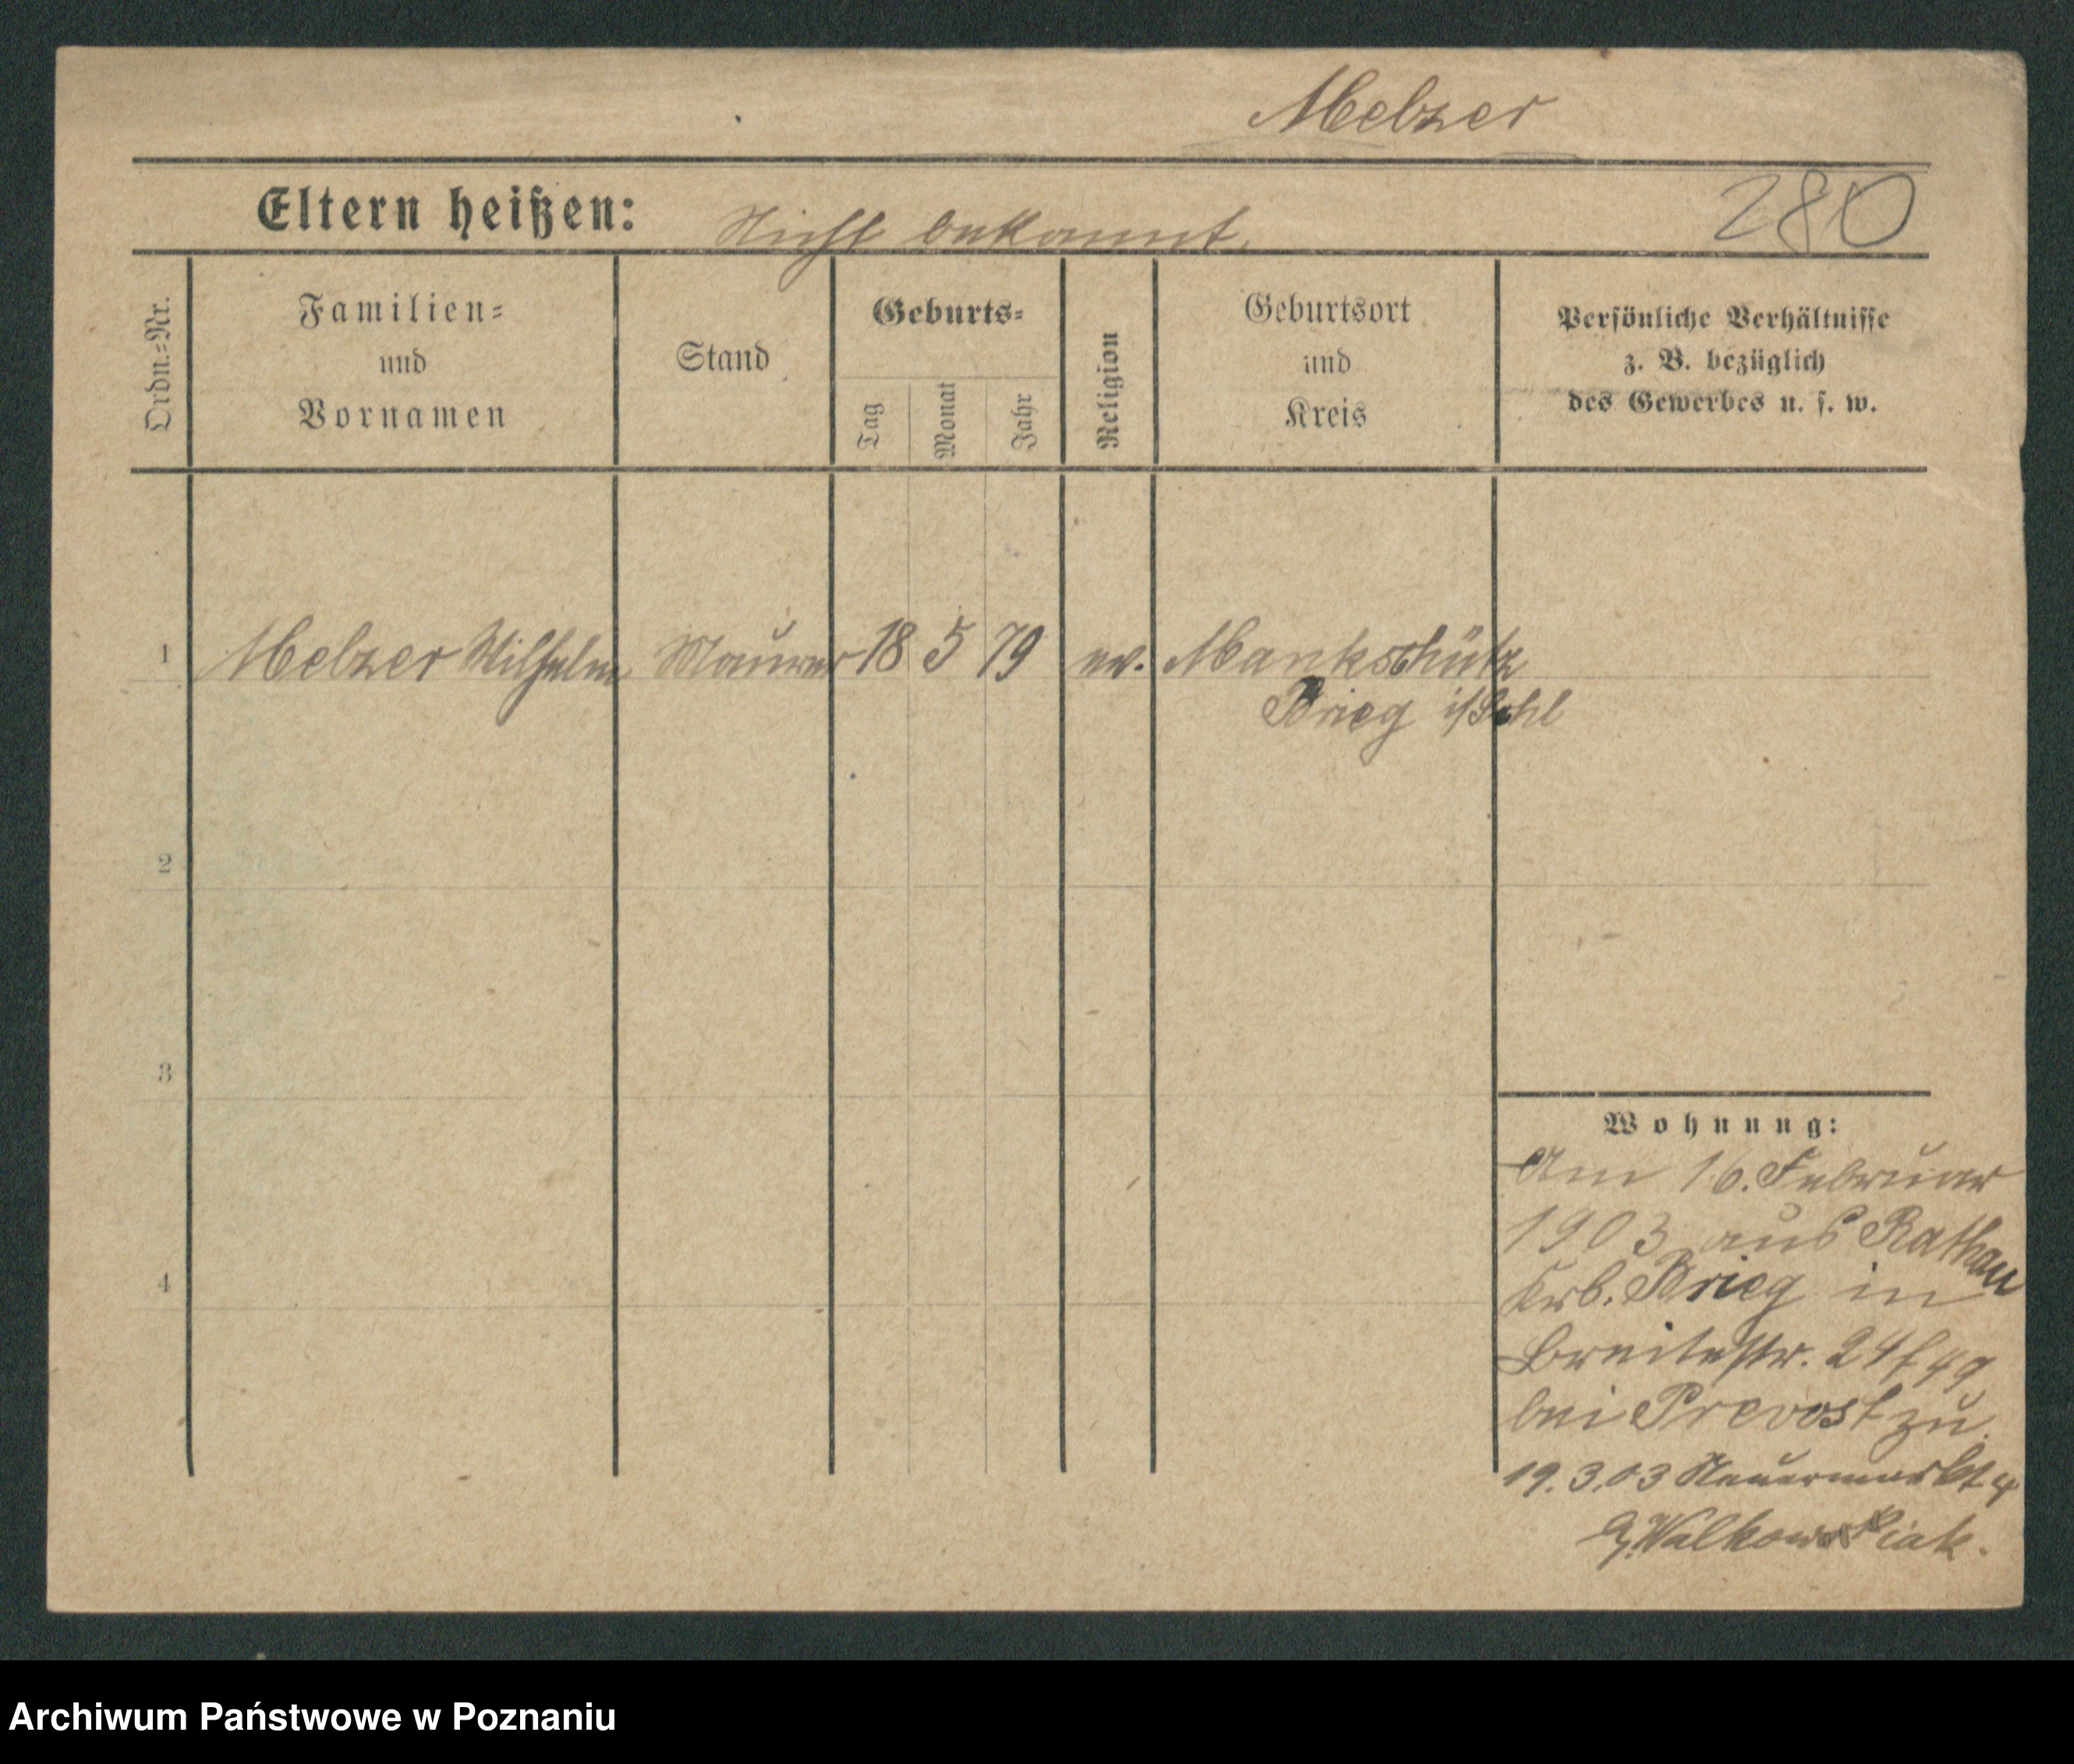 Melzer
Eltern heißen: Nicht bekannt.
280
Ordn.=Nr.
Familien=
und
Vornamen
Stand
Geburts=
Tag
Monat
Jahr
Religion
Geburtsort
und
Kreis
Persönliche Verhältnisse
z. B. bezüglich
des Gewerbes u. s. w.
1 Melzer Wilhelm Maurer 18 5 79 ev. Mankschütz
Brieg i/Schl
2
3
4
Wohnung:
Am 16. Februar
1903 aus Rathau
Krb. Brieg in
Breitestr. 24
bei Prevost zu
19.3.03 Neuermarkt 4
Walkowiak.
Archiwum Państwowe w Poznaniu